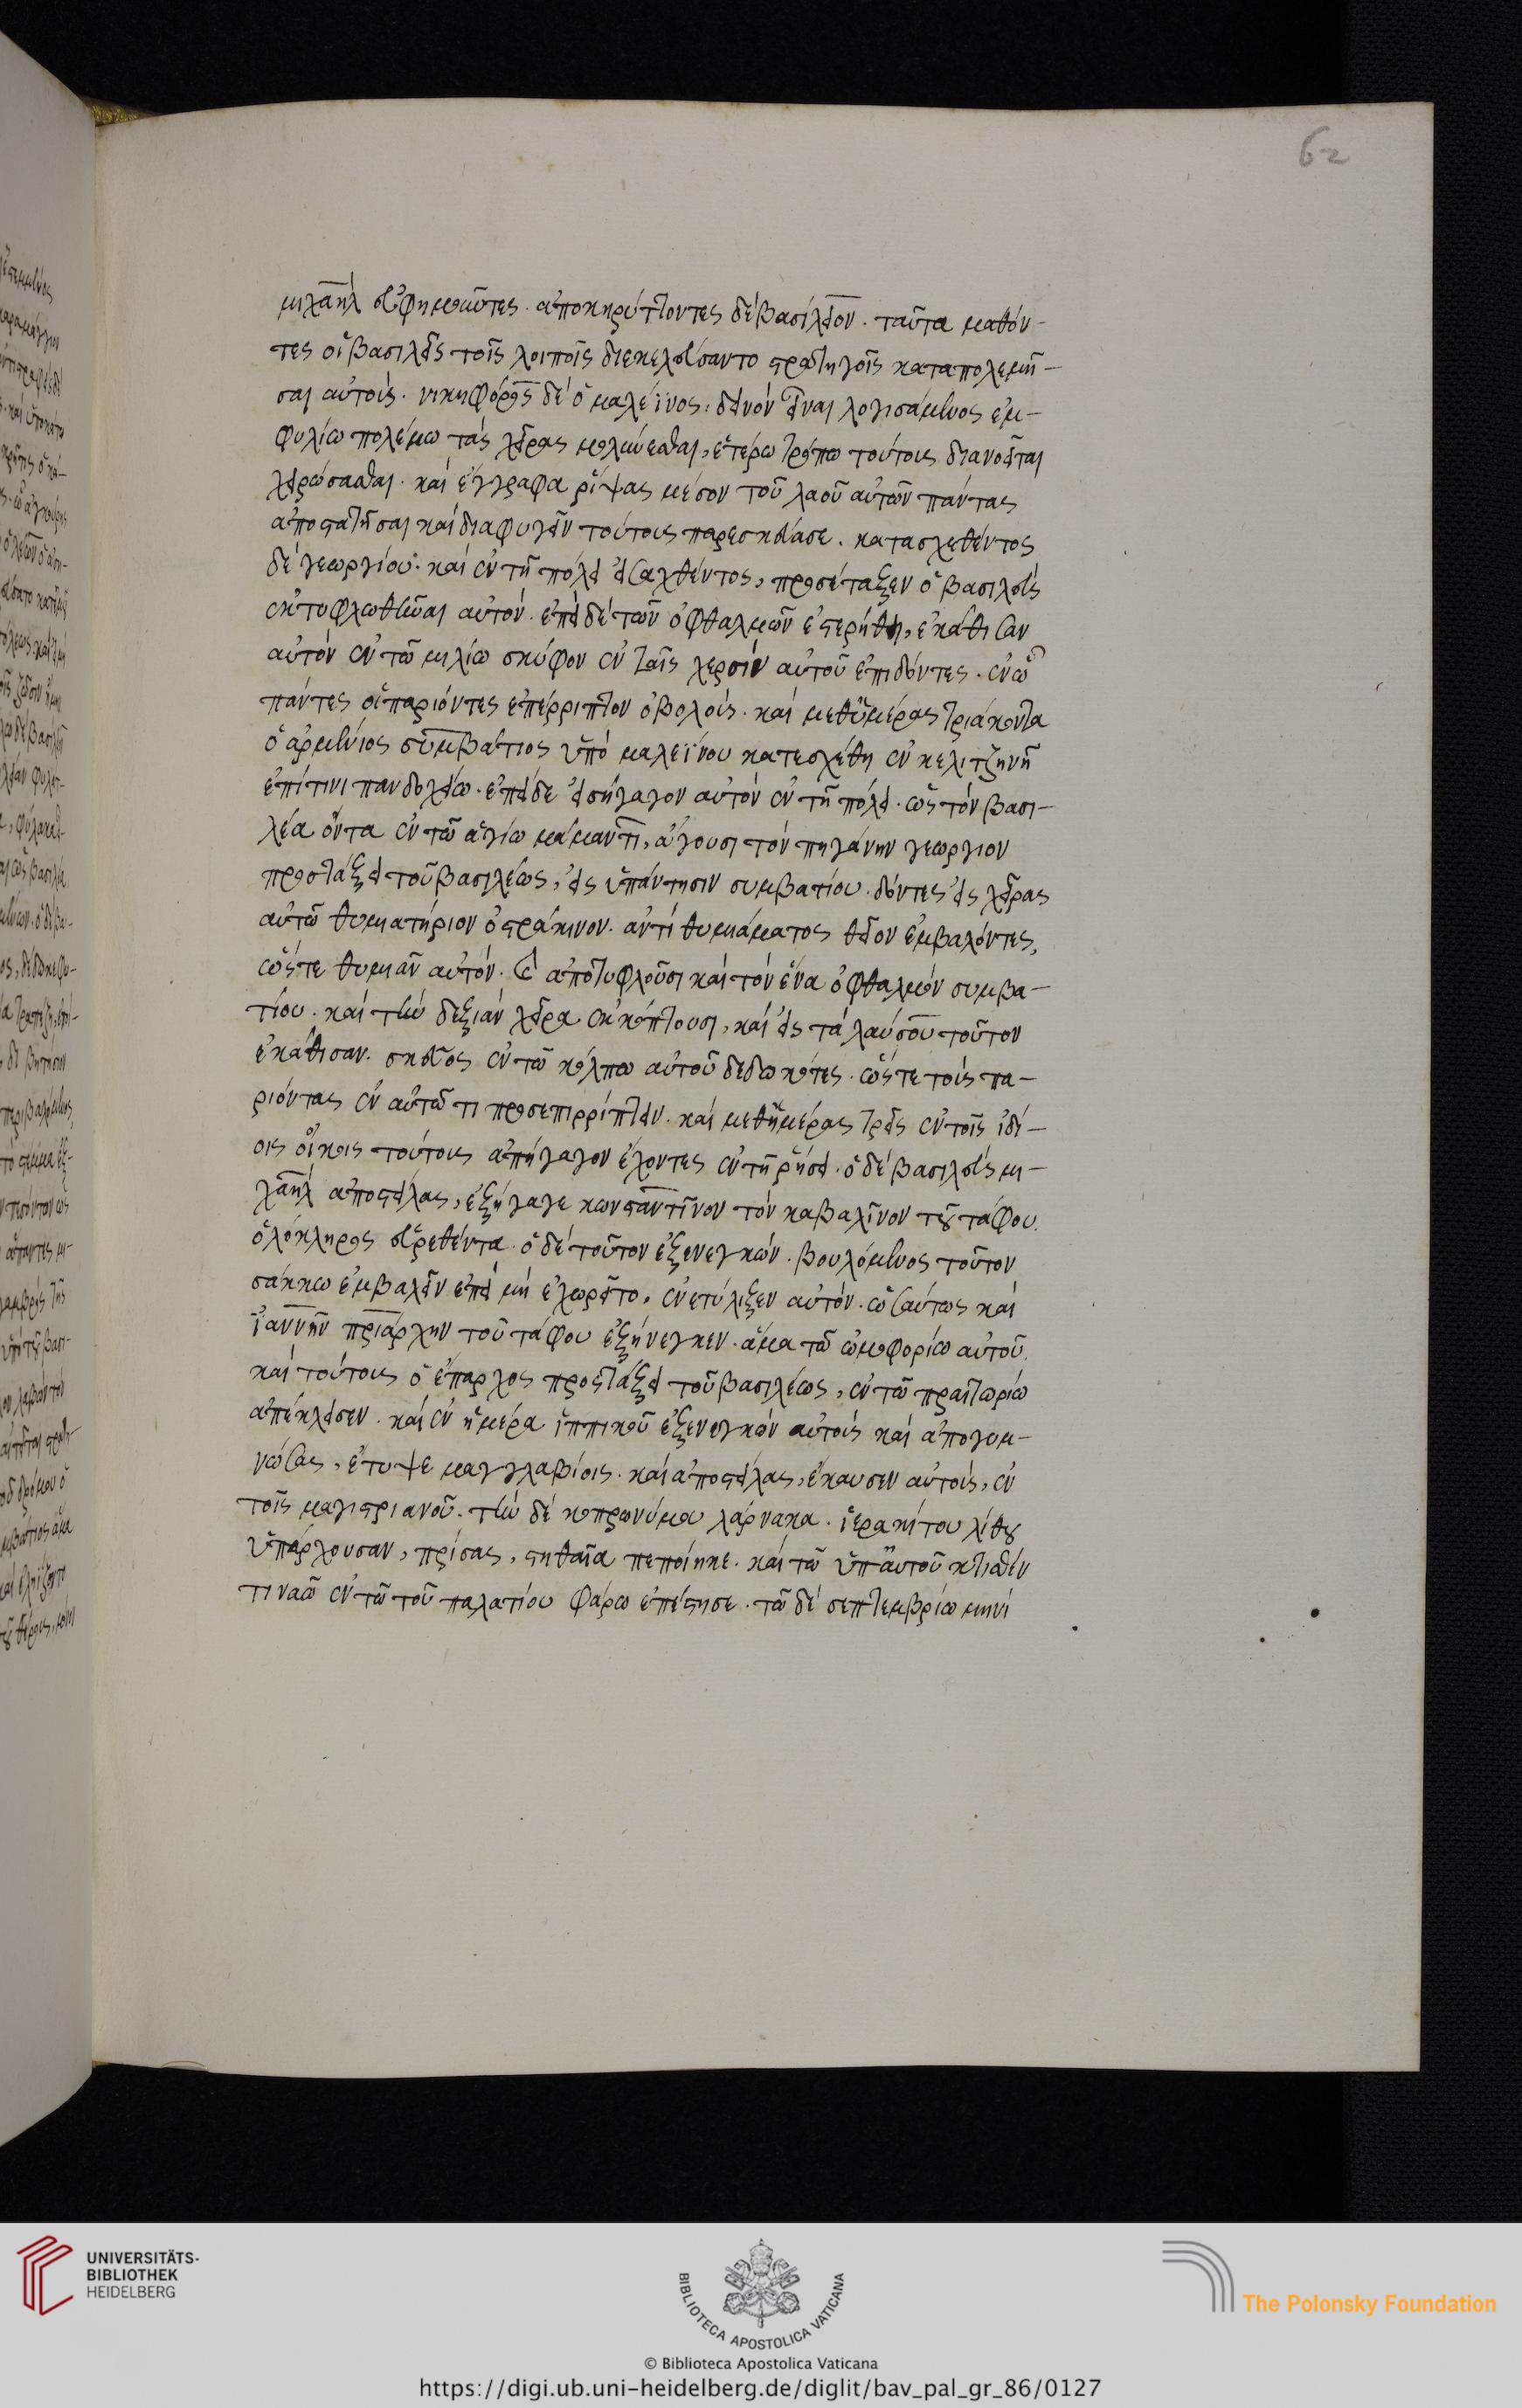 62
μιχαὴλ εὐφημοῦντες. ἀποκηρύττοντες δὲ βασίλειον. ταῦτα μαθόν-
τες οἱ βασιλεῖς τοῖς λοιποῖς διεκελεύσαντο στρατηγοῖς καταπολεμῆ-
σαι αὐτούς. νικηφόρος δὲ ὁ μαλέϊνος, δεινὸν εἶναι λογισάμενος ἐμ-
φυλίω πολέμω τὰς χεῖρας μολύνεσθαι, ἑτέρω τρόπω τούτους διανοεῖται
χειρώσασθαι. καὶ ἔγγραφα ῥίψας μέσον τοῦ λαοῦ αὐτῶν πάντας
ἀποστατῆσαι καὶ διαφυγεῖν τούτους παρεσκεύασε. κατασχεθέντος
δὲ γεωργίου. καὶ ἐν τῆ πόλει εἰσαχθέντος, προσέταξεν ὁ βασιλεὺς
ἐκτυφλωθῆναι αὐτόν. ἐπεὶ δὲ τῶν ὀφθαλμῶν ἐστερήθη, ἐκάθισαν
αὐτὸν ἐν τῶ μιλίω σκύφον ἐν ταῖς χερσὶν αὐτοῦ ἐπιδόντες. ἐν ὧ
πάντες οἱ παριόντες ἐπέρριπτον ὀβολούς. καὶ μεθ' ἡμέρας τριάκοντα
ὁ ἀρμένιος συμβάτιος ὑπὸ μαλεΐνου κατεσχέθη ἐν κελιτζηνῆ
ἐπί τινι πανδοχείω. ἐπεὶ δε εἰσήγαγον αὐτὸν ἐν τῆ πόλει. ὡς τὸν βασι-
λέα ὄντα ἐν τῶ ἁγίω μάμαντι, ἄγουσι τὸν πηγάνην γεωργιον
προστάξει τοῦ βασιλέως, εἰς ὑπάντησιν συμβατίου. δόντες εἰς χεῖρας
αὐτῶ θυμιατήριον ὀστράκινον. ἀντὶ θυμιάματος θεῖον ἐμβαλόντες,
ὥστε θυμιᾶν αὐτόν. καὶ ἀποτυφλοῦσι καὶ τὸν ἕνα ὀφθαλμὸν συμβα-
τίου. καὶ τὴν δεξιὰν χεῖρα ἐκκόπτουσι, καὶ εἰς τὰ λαύσου τοῦτον
ἐκάθισαν. σκεῦος ἐν τῶ κόλπω αὐτοῦ δεδωκότες. ὥστε τοὺς πα-
ριόντας ἐν αὐτῶ τι προσεπιρρίπτειν. καὶ μεθ' ἡμέρας τρεῖς ἐν τοῖς ἰδί-
οις οἴκοις τούτους ἀπήγαγον ἔχοντες ἐν τῆ ῥήσει. ὁ δὲ βασιλεὺς μι-
χαὴλ ἀποστείλας, ἐξήγαγε κωνσταντῖνον τὸν καβαλῖνον τοῦ τάφου.
ὁλόκληρος εὑρεθέντα. ὁ δὲ τοῦτον ἐξενεγκών. βουλόμενος τοῦτον
σάκκω ἐμβαλεῖν ἐπεὶ μὴ ἐχωρεῖτο, ἐνετύλιξεν αὐτόν. ὡσαύτως καὶ
ἰαννὴν πριάρχην τοῦ τάφου ἐξήνεγκεν. ἅμα τῶ ὠμοφορίω αὐτοῦ.
καὶ τούτους ὁ ἔπαρχος προστάξει τοῦ βασιλέως, ἐν τῶ πραιτωρίω
ἀπέκλεισεν. καὶ ἐν ἡμέρα ἱππικοῦ ἐξενεγκὼν αὐτοὺς καὶ ἀπογυμ-
νώσας, ἔτυψε μαγγλαβίοις. καὶ ἀποστείλας, ἔκαυσεν αὐτοὺς, ἐν
τοῖς μαγιστριανοῦ. τὴν δὲ κοπρωνύμου λάρνακα. ἱερακίτου λίθου
ὑπάρχουσαν, πρίσας, στηθαῖα πεποίηκε. καὶ τῶ ὑπ' αὐτοῦ κτισθέν
τι ναῶ ἐν τῶ τοῦ παλατίου φάρω ἐπέστησε. τῶ δὲ σεπτεμβρίω μηνὶ
UNIVERSITÄTS-
BIBLIOTHEK
HEIDELBERG
BIBLIOTECA APOSTOLICA VATICANA
© Biblioteca Apostolica Vaticana
The Polonsky Foundation
https://digi.ub.uni-heidelberg.de/diglit/bav_pal_gr_86/0127